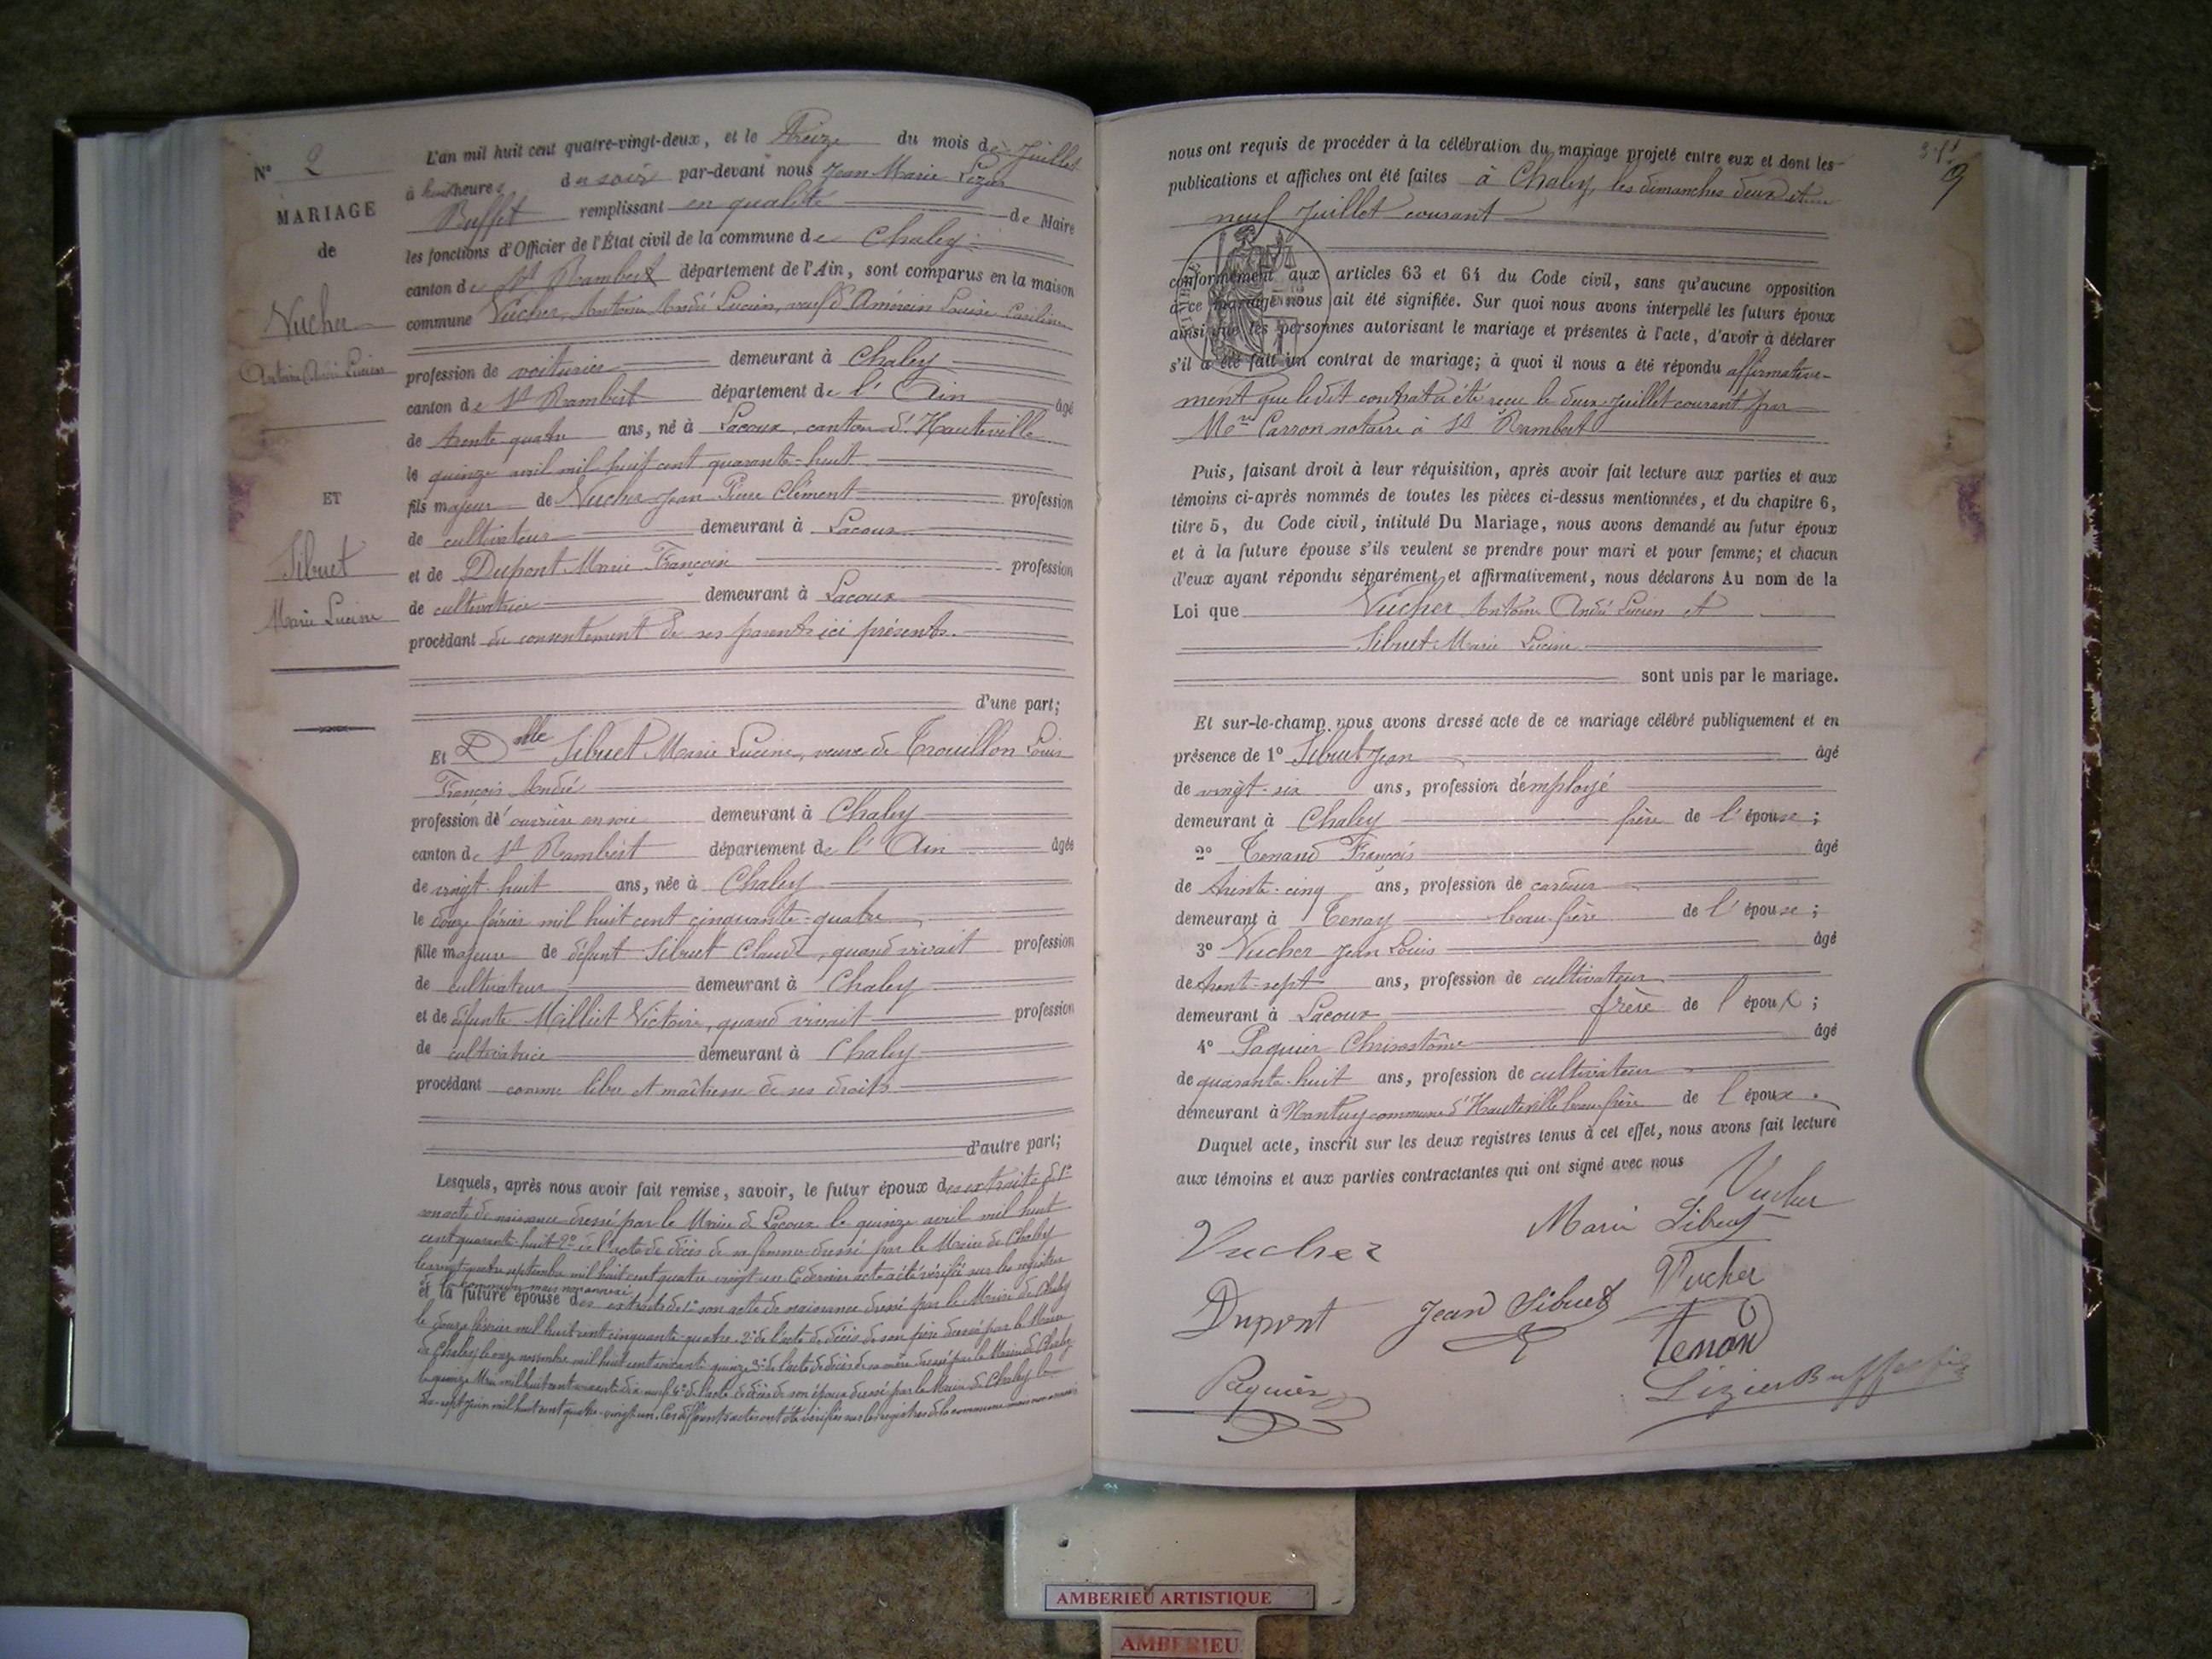 N° 2
MARIAGE
de
Vucher
Antoine André Lucien
ET
Sibuet
Marie Lucine
L'an mil huit cent quatre-vingt-deux, et le Treize du mois de Juillet
à huit heures du soir par-devant nous Jean Marie Lizier
Buffet remplissant en qualité de Maire
les fonctions d'Officier de l'État civil de la commune de Chaley
canton de St Rambert département de l'Ain, sont comparus en la maison
commune Vucher, Antoine André Lucien, veuf d'Louise
profession de voiturier demeurant à Chaley
canton de St Rambert département de l'Ain âgé
de trente quatre ans, né à Lacoux, canton d'Hauteville
le quinze avril mil huit cent quarante-huit
fils majeur de Vucher Jean Pierre Clément profession
de cultivateur demeurant à Lacoux
et de Dupont Marie Françoise profession
de cultivatrice demeurant à Lacoux
procédant du consentement de ses parents ici présents.
d'une part;
Et Dlle Sibuet Marie Lucine, veuve de Trouillon Louis
François André
profession d'ouvrière en soie demeurant à Chaley
canton de St Rambert département de l'Ain âgée
de vingt huit ans, née à Chaley
le douze février mil huit cent cinquante-quatre
fille majeure de défunt Sibuet Claude, quand vivait profession
de cultivateur demeurant à Chaley
et de défunte Milliet Victoire, quand vivait profession
de cultivatrice demeurant à Chaley
procédant comme libre et maîtresse de ses droits
d'autre part;
Lesquels, après nous avoir fait remise, savoir, le futur époux des extraits de 1°
son acte de naissance dressé par le Maire de Lacoux le quinze avril mil huit
cent quarante-huit 2° de l'acte de décès de sa femme dressé par le Maire de Chaley
le vingt-quatre septembre mil huit cent quatre vingt un Ce dernier acte a été vérifié sur les registres
de la commune mais non annexé
et la future épouse des extraits de 1° son acte de naissance dressé par le Maire de Chaley
le douze février mil huit cent cinquante-quatre. 2° de l'acte de décès de son père dressé par le Maire
de Chaley le onze novembre mil huit cent soixante quinze 3° de l'acte de décès de sa mère dressé par le Maire de Chaley
le quinze Mai mil huit cent soixante dix neuf 4° de l'acte de décès de son époux dressé par le Maire de Chaley le
dix-sept Juin mil huit cent quatre-vingt un. Ces différents actes ont été vérifiés sur les registres de la commune mais non annexés
9
nous ont requis de procéder à la célébration du mariage projeté entre eux et dont les
publications et affiches ont été faites à Chaley, les dimanches deux et
neuf Juillet courant
conformément aux articles 63 et 64 du Code civil, sans qu'aucune opposition
à ce mariage nous ait été signifiée. Sur quoi nous avons interpellé les futurs époux
ainsi que les personnes autorisant le mariage et présentes à l'acte, d'avoir à déclarer
s'il a été fait un contrat de mariage; à quoi il nous a été répondu affirmative-
ment que le dit contrat a été reçu le deux Juillet courant par
Me Carron notaire à St Rambert
Puis, faisant droit à leur réquisition, après avoir fait lecture aux parties et aux
témoins ci-après nommés de toutes les pièces ci-dessus mentionnées, et du chapitre 6,
titre 5, du Code civil, intitulé Du Mariage, nous avons demandé au futur époux
et à la future épouse s'ils veulent se prendre pour mari et pour femme; et chacun
d'eux ayant répondu séparément et affirmativement, nous déclarons Au nom de la
Loi que Vucher Antoine André Lucien et
Sibuet Marie Lucine
sont unis par le mariage.
Et sur-le-champ nous avons dressé acte de ce mariage célébré publiquement et en
présence de 1° Sibuet Jean âgé
de vingt-six ans, profession d'employé
demeurant à Chaley frère de l'épouse;
2° Tenand François âgé
de trente-cinq ans, profession de cardeur
demeurant à Tenay beau-frère de l'épouse;
3° Vucher Jean Louis âgé
de trent-sept ans, profession de cultivateur
demeurant à Lacoux frère de l époux;
4° Paquier Chrisostôme âgé
de quarante-huit ans, profession de cultivateur
demeurant à Nantuy commune d'Hauteville beau-frère de l époux.
Duquel acte, inscrit sur les deux registres tenus à cet effet, nous avons fait lecture
aux témoins et aux parties contractantes qui ont signé avec nous
Vucher
Marie Sibuet
Vucher
Vucher
Dupont
Jean Sibuet
Tenan
Paquier
Lizier Buffet
AMBERIEU ARTISTIQUE
AMBERIEU